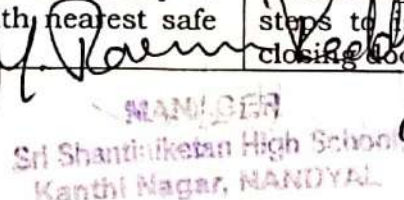 th nearest safe steps to
closing doo
MANAGER
Sri Shantiniketan High School
Kanthi Nagar, NANDYAL